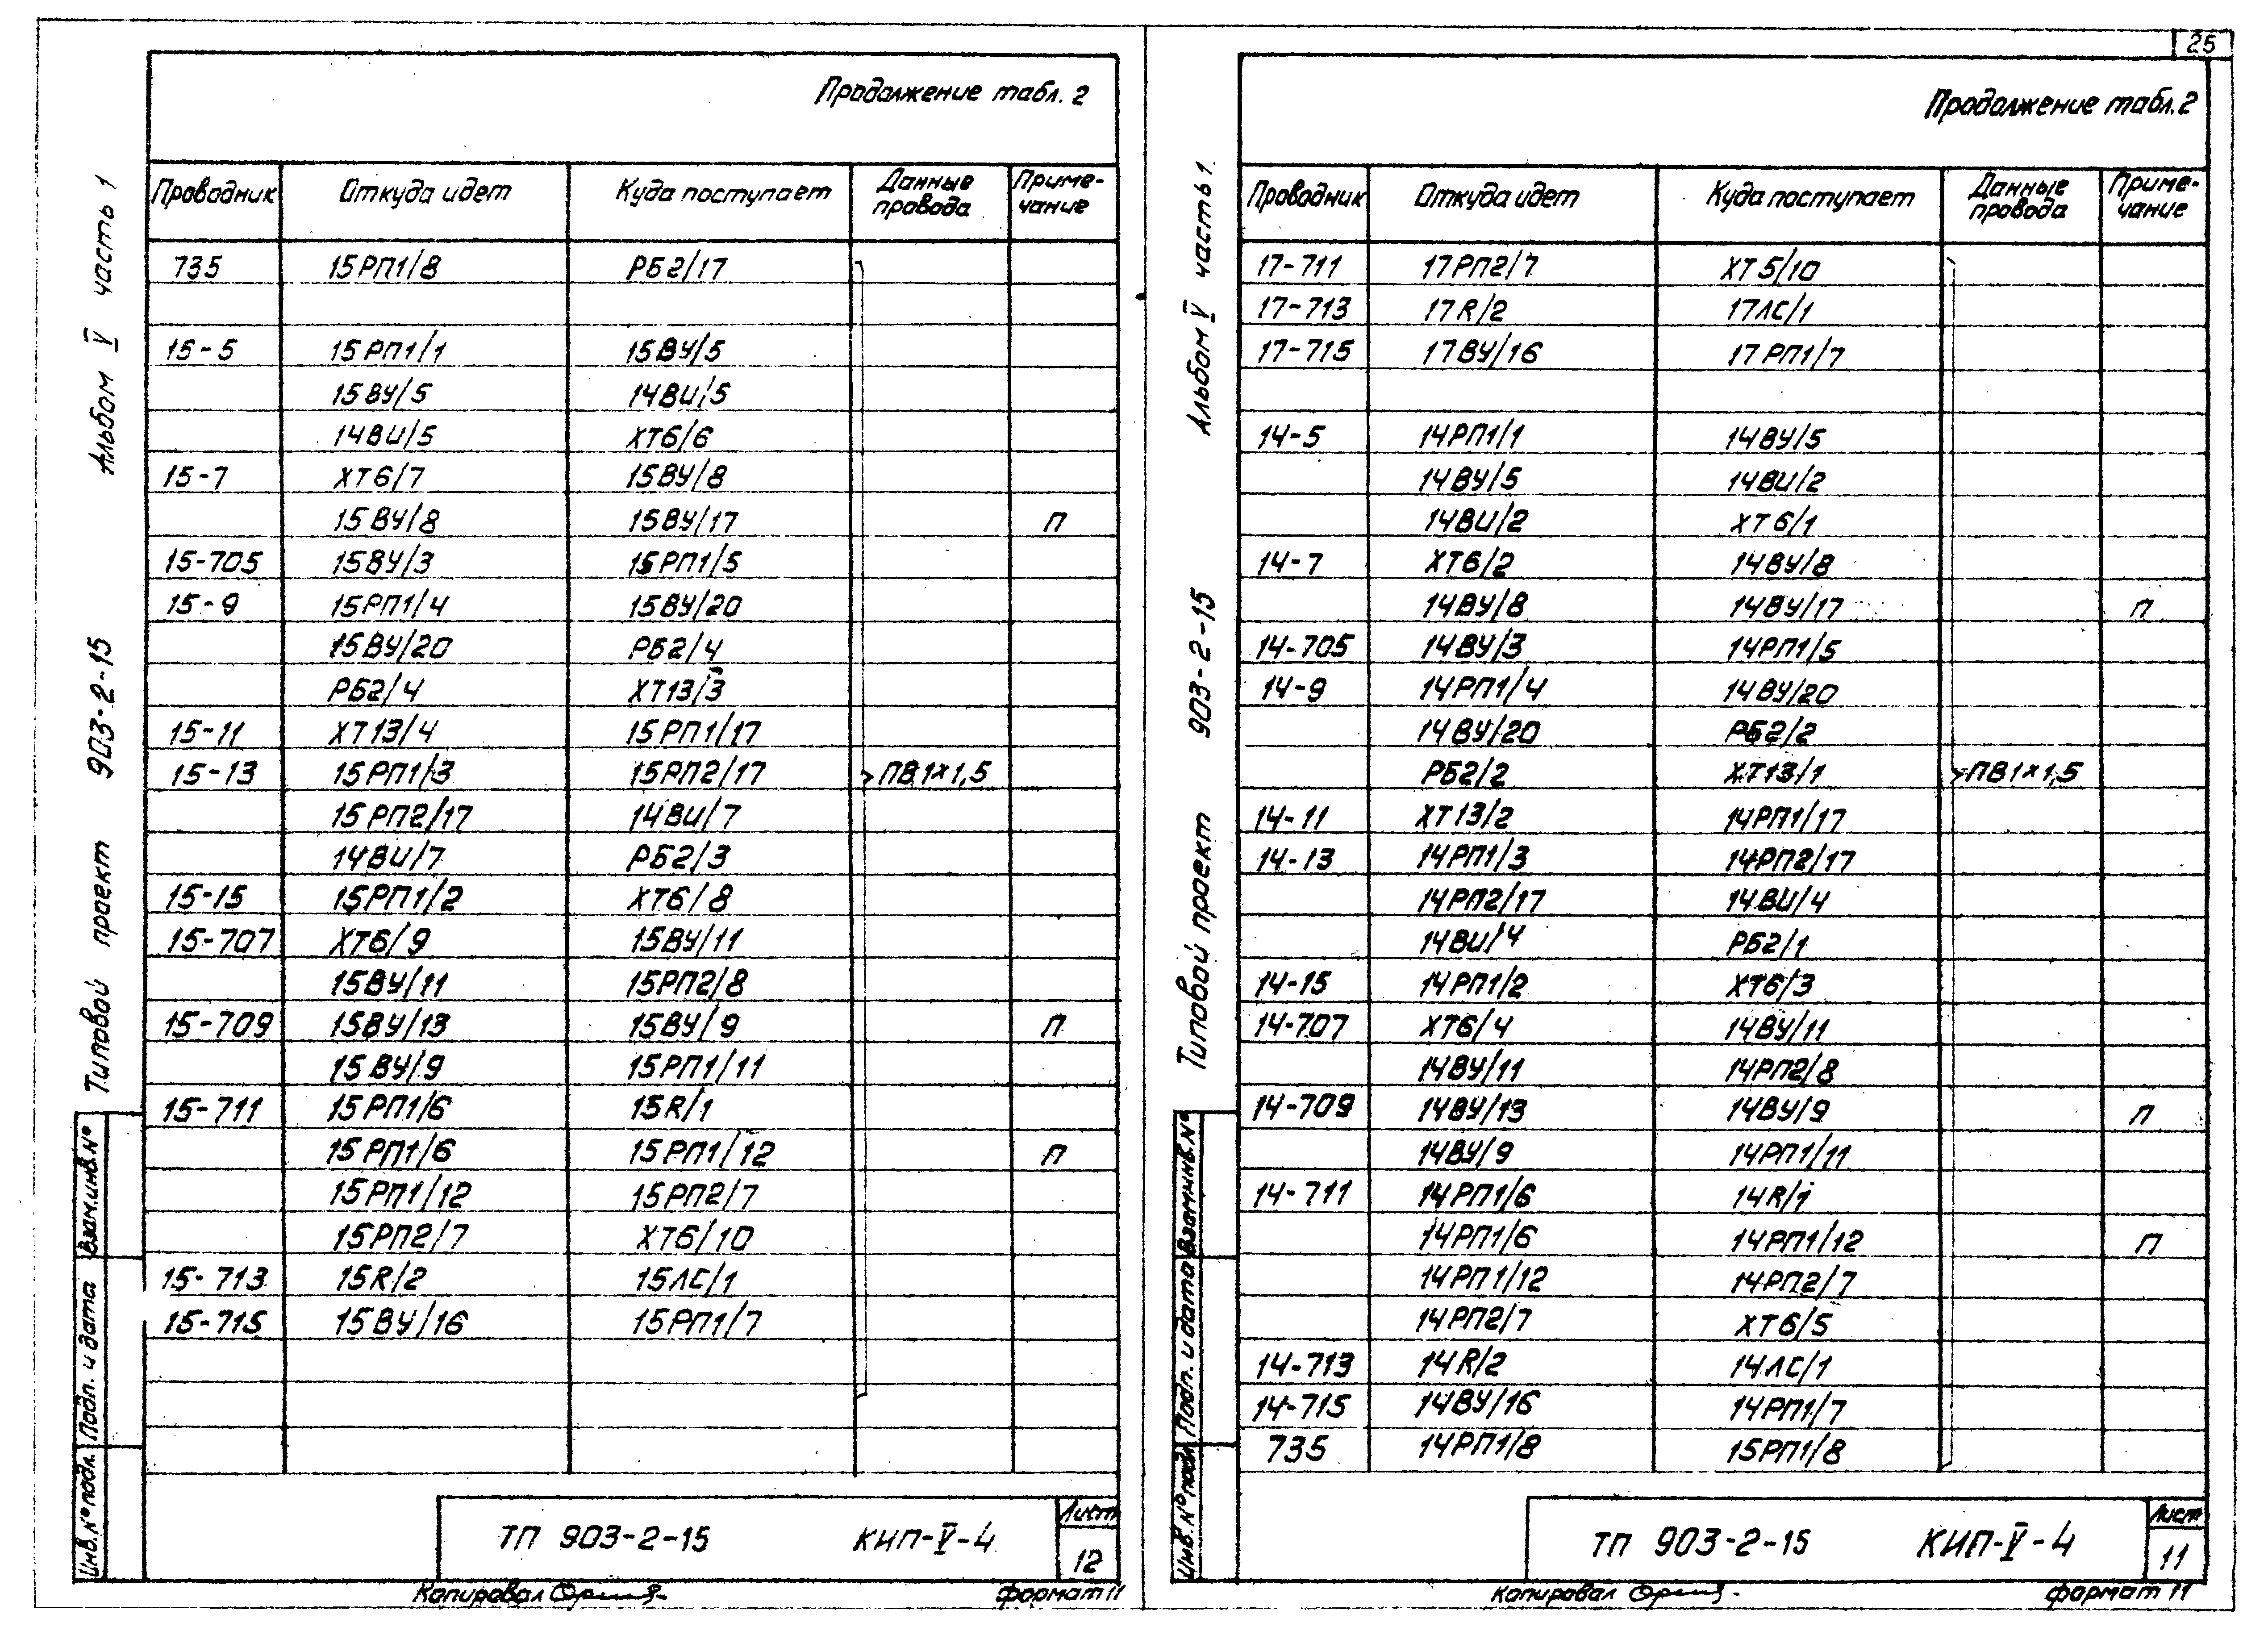 25
Продолжение табл. 2
Проводник Откуда идет Куда поступает Данные провода Приме-чание
735 15РП1/8 РБ2/17
15-5 15РП1/1 15ВУ/5
15ВУ/5 14ВИ/5
14ВИ/5 ХТ6/6
15-7 ХТ6/7 15ВУ/8
15ВУ/8 15ВУ/17 П
15-705 15ВУ/3 15РП1/5
15-9 15РП1/4 15ВУ/20
15ВУ/20 РБ2/4
РБ2/4 ХТ13/3
15-11 ХТ13/4 15РП1/17
15-13 15РП1/3 15РП2/17 ПВ1×1,5
15РП2/17 14ВИ/7
14ВИ/7 РБ2/3
15-15 15РП1/2 ХТ6/8
15-707 ХТ6/9 15ВУ/11
15ВУ/11 15РП2/8
15-709 15ВУ/13 15ВУ/9 П
15ВУ/9 15РП1/11
15-711 15РП1/6 15R/1
15РП1/6 15РП1/12 П
15РП1/12 15РП2/7
15РП2/7 ХТ6/10
15-713 15R/2 15ЛС/1
15-715 15ВУ/16 15РП1/7
ТП 903-2-15 КИП-V-4
Лист
12
Копировал
формат 11
Типовой проект 903-2-15 Альбом V часть 1
Инв.№ подл. Подп. и дата Взам.инв.№
Продолжение табл. 2
Проводник Откуда идет Куда поступает Данные провода Приме-чание
17-711 17РП2/7 ХТ5/10
17-713 17R/2 17ЛС/1
17-715 17ВУ/16 17РП1/7
14-5 14РП1/1 14ВУ/5
14ВУ/5 14ВИ/2
14ВИ/2 ХТ6/1
14-7 ХТ6/2 14ВУ/8
14ВУ/8 14ВУ/17 П
14-705 14ВУ/3 14РП1/5
14-9 14РП1/4 14ВУ/20
14ВУ/20 РБ2/2
РБ2/2 ХТ13/1 ПВ1×1,5
14-11 ХТ13/2 14РП1/17
14-13 14РП1/3 14РП2/17
14РП2/17 14ВИ/4
14ВИ/4 РБ2/1
14-15 14РП1/2 ХТ6/3
14-707 ХТ6/4 14ВУ/11
14ВУ/11 14РП2/8
14-709 14ВУ/13 14ВУ/9 П
14ВУ/9 14РП1/11
14-711 14РП1/6 14R/1
14РП1/6 14РП1/12 П
14РП1/12 14РП2/7
14РП2/7 ХТ6/5
14-713 14R/2 14ЛС/1
14-715 14ВУ/16 14РП1/7
735 14РП1/8 15РП1/8
ТП 903-2-15 КИП-V-4
Лист
11
Копировал
формат 11
Типовой проект 903-2-15 Альбом V часть 1
Инв.№ подл. Подп. и дата Взам.инв.№